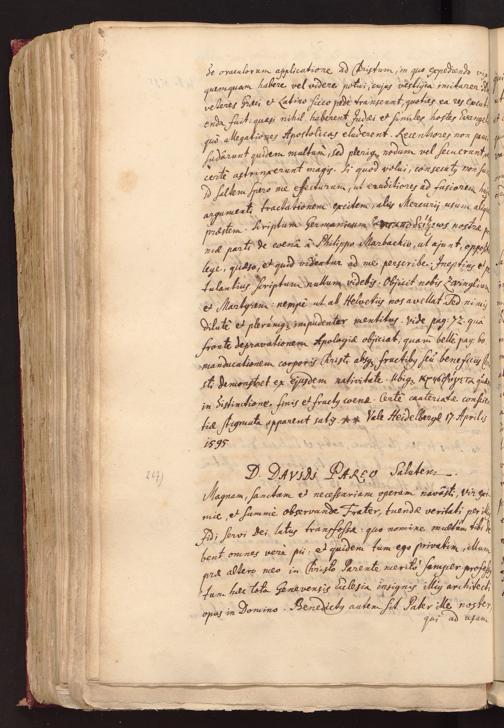 de oraculorum applicatione ad Christum, in quo expediendo vix
quemquam habere vel videre potui, cujus vestigia imitarer.
veteres Graeci et Latini sicco pede transeunt, quoties ea res
enda fuit: quasi nihil haberent Judaei et similes hostes Evangel
quo allegationes Apostolicas eluderent. Recentiores non pauci
sudarunt quidem multum, sed plerique nodum vel secuerunt
certe astrinxerunt magis. Si quod volui, consecutus non su
id saltem spero me effecturum, ut eruditiores ad fusiorem hujus
argumenti tractationem excitem, aliis Mercurij usum aliq
praestem. Scriptum Germanicum nostrae
niae parti de coena à Philippo Marbachio, ut ajunt, opposit
lege, quaeso, et quid videatur ad me perscribe. Ineptius et p
tulantius scriptum nullum videbis. Objicit nobis Zwinglium
et Martyrem: nempe ut ab Helvetiis nos avellat. Sed nimis
dilutè et plerumque impudenter mentitus. Vide pag. 72. qua
fronte depravationem Apologiae objiciat; quàm bellè pag.
manducationem corporis Christi absque fructibus seu beneficiis Chri
sti demonstret ex ejusdem nativitate. Ubique
in distinctione, finis et fructus coenae. Certè cauteriatae conscien
tiae stigmata apparent satis. ** Vale Heidelbergae 17 Aprilis
1595
247)
D. DAVIDI PAREO Salutem. —
Magnam, sanctam et necessariam operam navâsti, Vir exi-
mie, et summè observande Frater, tuendae veritati per
fidi servi Dei latus transfossae: quo nomine multùm tibi de
bent omnes verè pii: et quidem tum ego privatim, illum
prae altero meo in Christo Parente meritò semper professus
tum haec tota Genevensis Ecclesia insignis illius architecti
opus in Domino. Benedictus autem sit Pater ille noster
qui ad usum